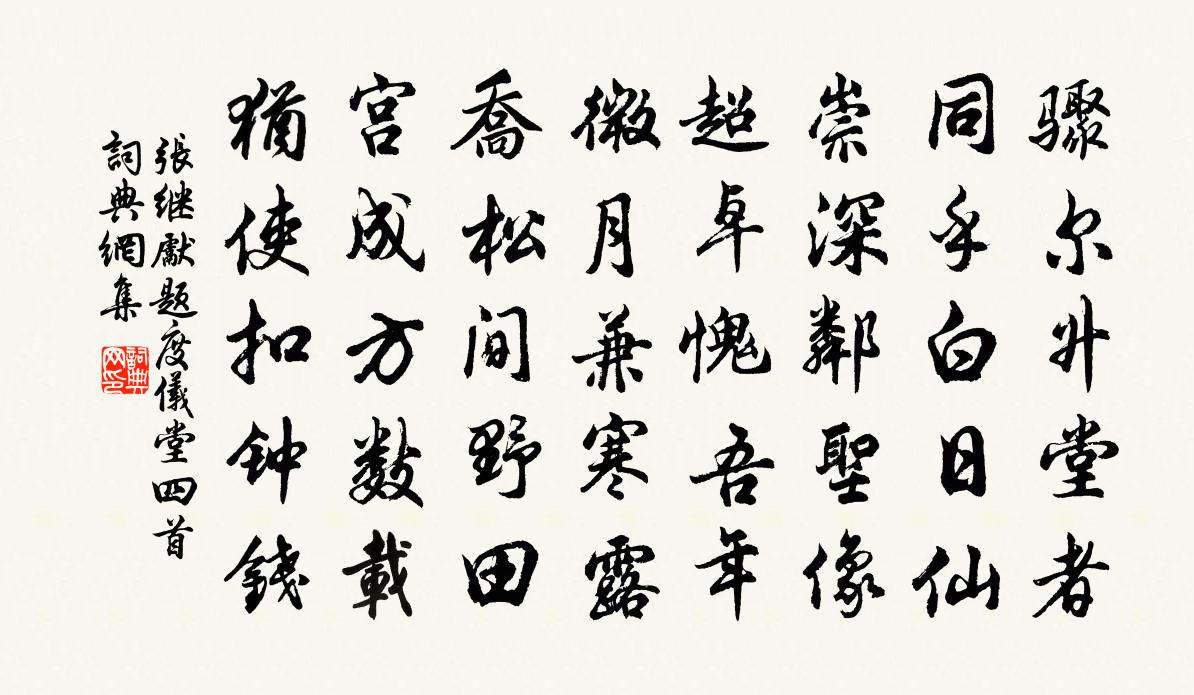 骤尔升堂者
同乎白日仙
崇深鄰聖像
超卓愧吾年
微月兼寒露
喬松间野田
宫成方数載
猶使扣钟錢
張继獻题度儀堂四首
詞典網集
詞典
网印